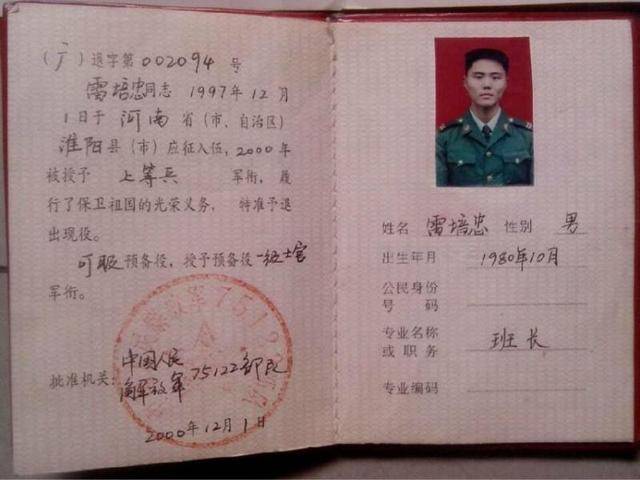 (广)退字第002094号
雷培忠同志1997年12月
1日于河南省(市、自治区)
淮阳县(市)应征入伍,2000年
被授予上等兵军衔,履
行了保卫祖国的光荣义务,特准予退
出现役。
可服预备役,授予预备役一级士官
军衔。
批准机关:中国人民
解放军75122部队
2000年12月1日
姓名 雷培忠 性别 男
出生年月 1980年10月
公民身份
号码
专业名称 班长
或职务
专业编码